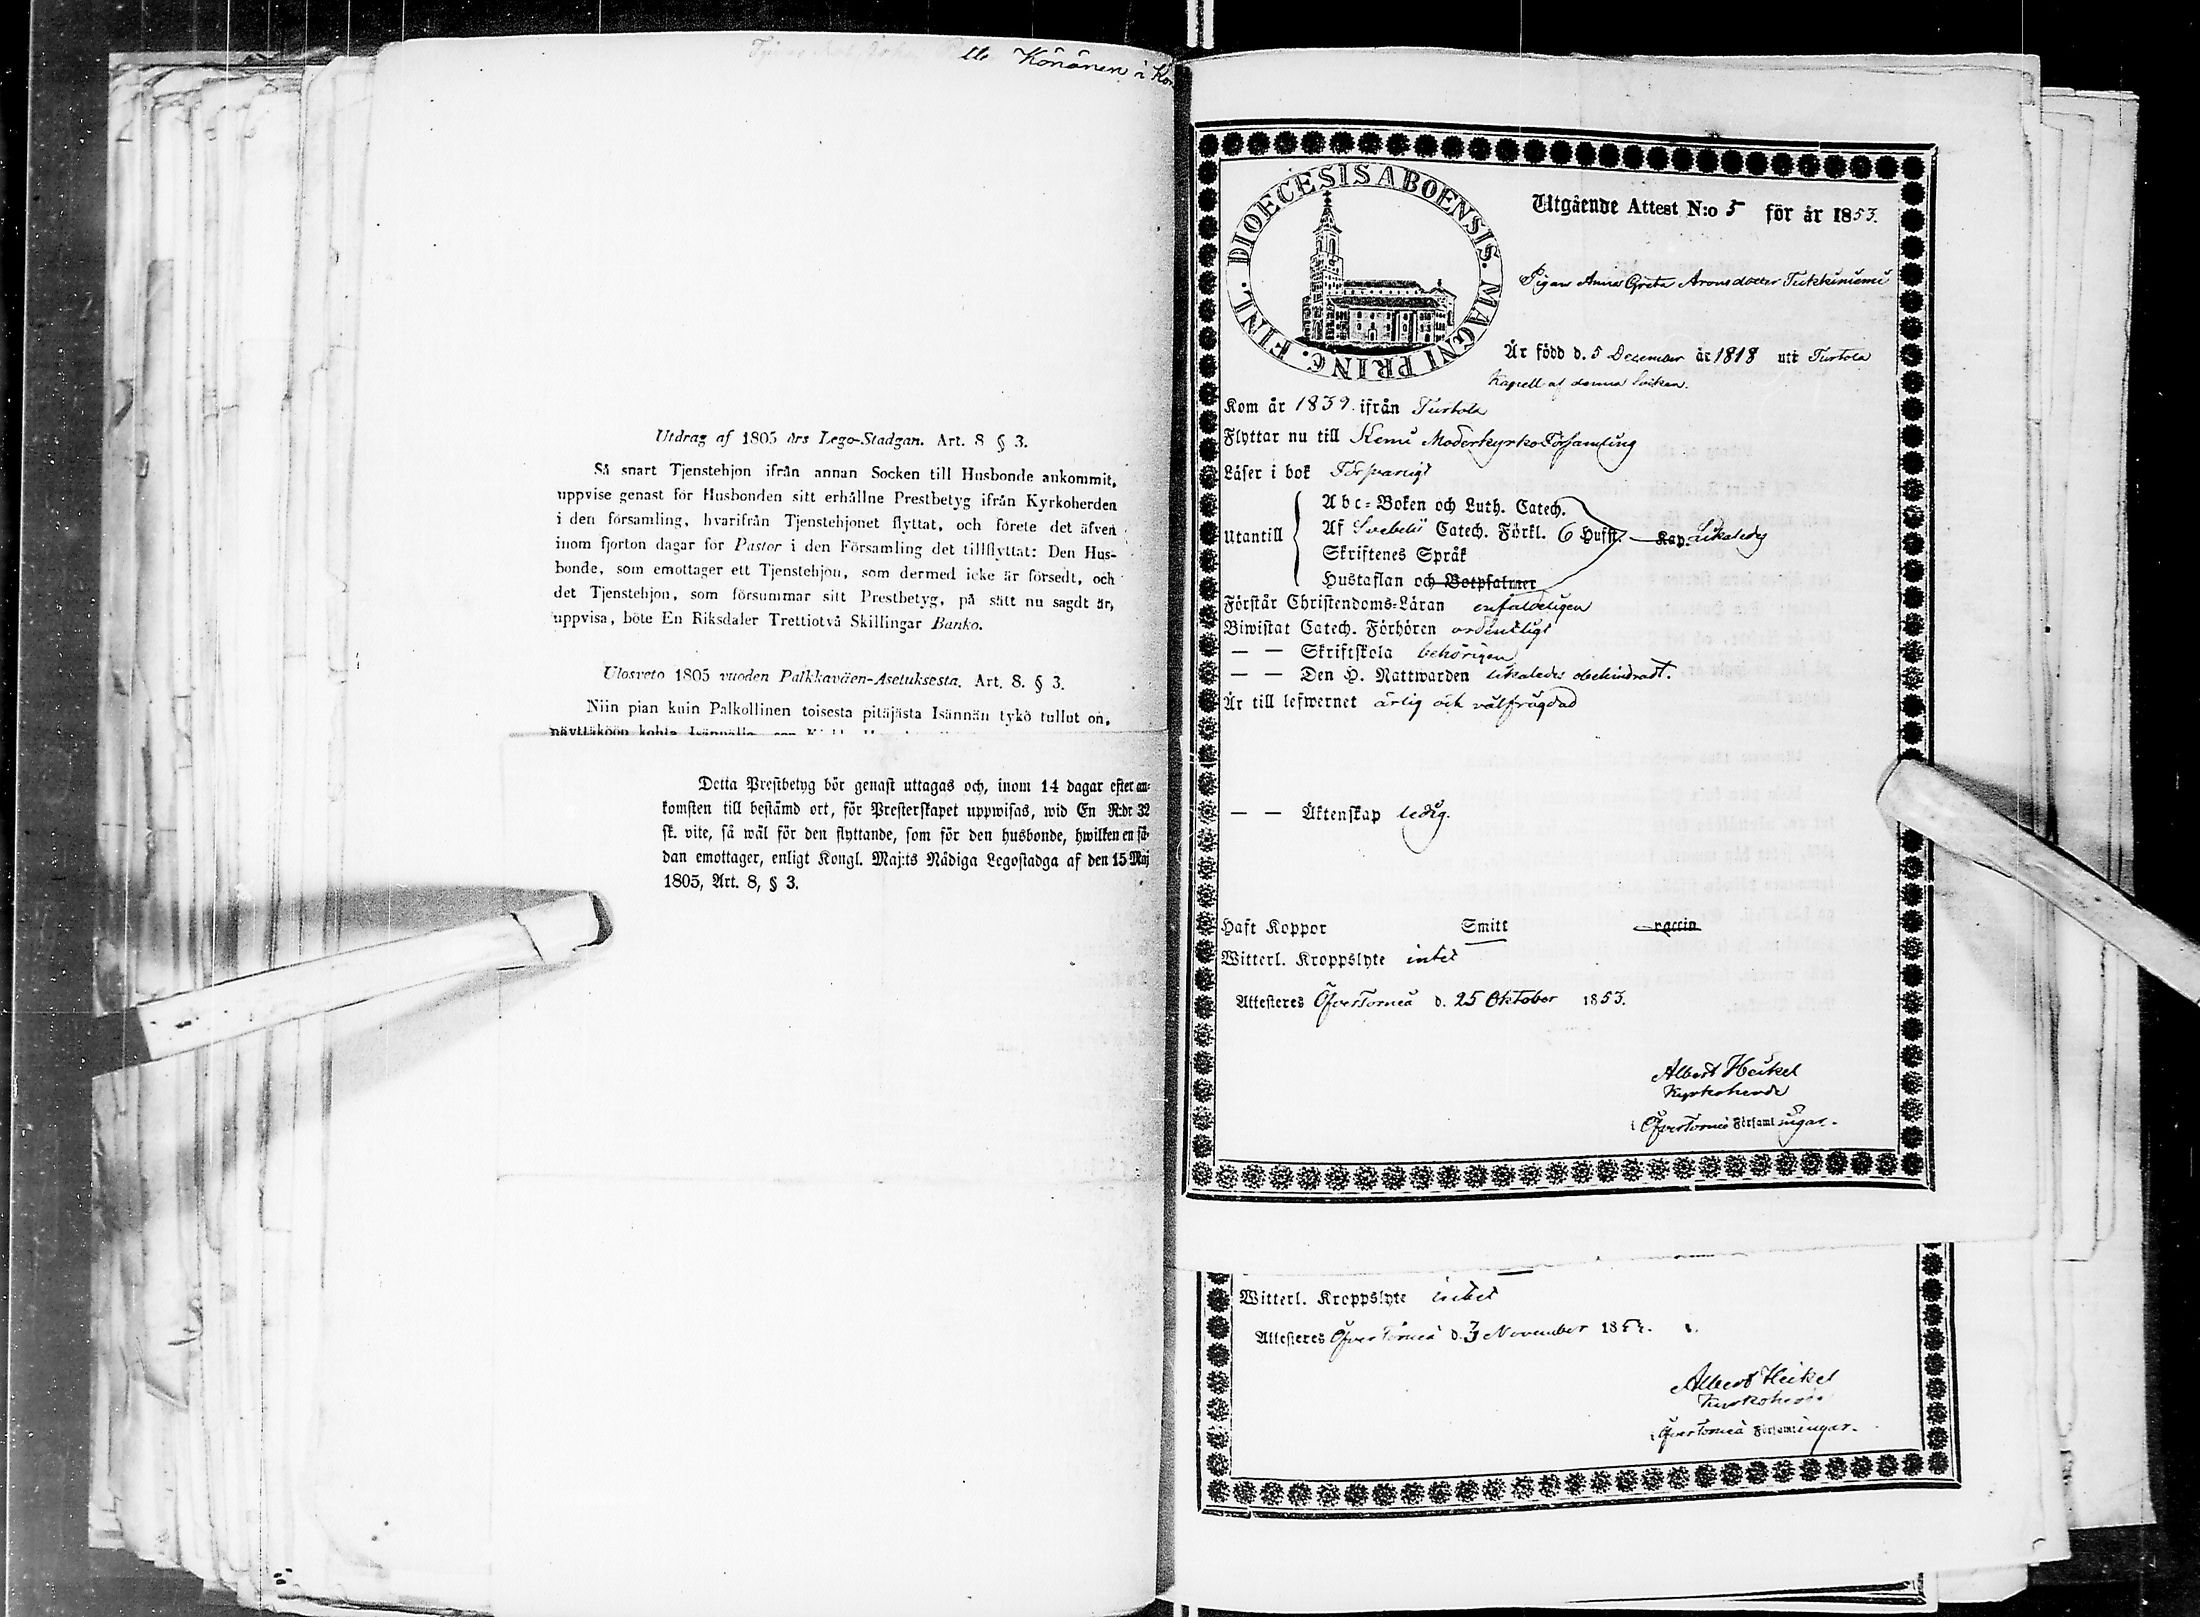 tte Könönen i
Utdrag af 1805 års Lego-Stadgan. Art. 8 § 3.
Så snart Tjenstehjon ifrån annan Socken till Husbonde ankommit,
uppvise genast för Husbonden sitt erhållne Prestbetyg ifrån Kyrkoherden
i den församling, hvarifrån Tjenstehjonet flyttat, och förete det äfven
inom fjorton dagar för Pastor i den Församling det tillflyttat: Den Hus-
bonde, som emottager ett Tjenstehjon, som dermed icke är försedt, och
det Tjenstehjon, som försummar sitt Prestbetyg, på sätt nu sagdt är,
uppvisa, böte En Riksdaler Trettiotvå Skillingar Banko.
Ulosveto 1805 vuoden Palkkaväen-Asetuksesta. Art. 8. § 3.
Niin pian kuin Palkollinen toisesta pitäjästä Isännän tykö tullut on,
Detta Prestbetyg bör genast uttagas och, inom 14 dagar efter an-
komsten till bestämd ort, för Presterskapet uppwisas, wid En R:dr 32
sk. vite, så wäl för den flyttande, som för den husbonde, hwilken en så-
dan emottager, enligt Kongl. Maj:ts Nådiga Legostadga af den 15 Maj
1805, Art. 8, § 3.
DIOECESIS ABOENSIS. MAGNI PRINC. FINL.
Utgående Attest N:o 5 för år 1853.
Pigan Anna Greta Aronsdotter Tukkiniemi
Är född d. 5 December år 1818 uti Turtola
Kapell af denna Socken.
Kom år 1839 ifrån Turtola
Flyttar nu till Kemi Moderkyrko Församling
Läser i bok Försvarligt
Abc-Boken och Luth. Catech.
Utantill Af Svebelii Catech. Förkl. 6 Hufst. Kap. Likaledes
Skriftenes Språk
Hustaflan och Botpsalmer
Förstår Christendoms-Läran enfaldeligen
Biwistat Catech. Förhören ordentligt
— — Skriftskola behörigen
— — Den H. Nattwarden likaledes obehindradt.
Är till lefwernet ärlig och välfrägdad
— — Äktenskap ledig.
Haft Koppor Smitt vaccin
Witterl. Kroppslyte intet
Attesteres ÖfverTorneå d. 25 Oktober 1853.
Albert Heikel
Kyrkoherde
i ÖfverTorneå Församlingar.
Witterl. Kroppslyte intet
Attesteres Öfver Torneå d. 3 November 185
Albert Heikel
Kyrkoherde
i ÖfverTorneå Församlingar.